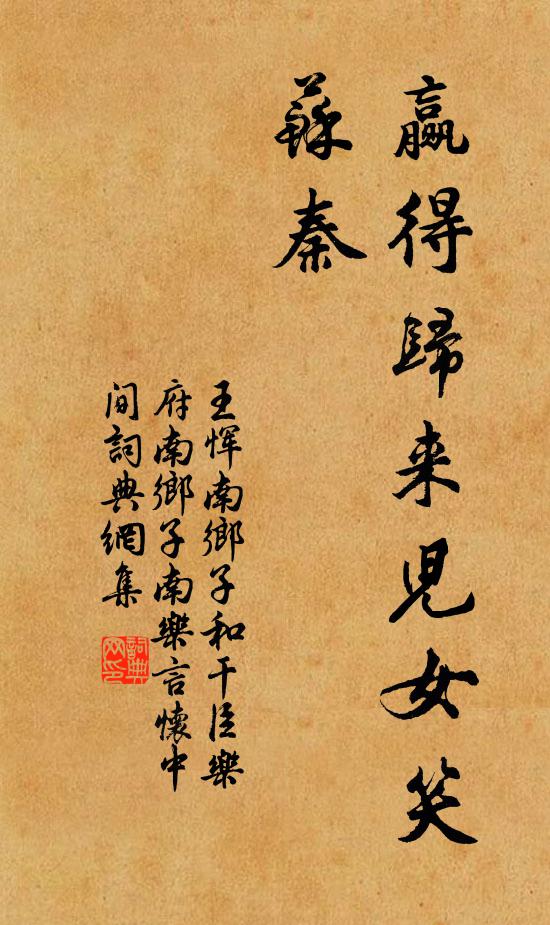 贏得歸来児女笑
蘇秦
王惲南鄉子和干臣樂
府南鄉子南樂言懷中
间詞典網集
詞典
网印